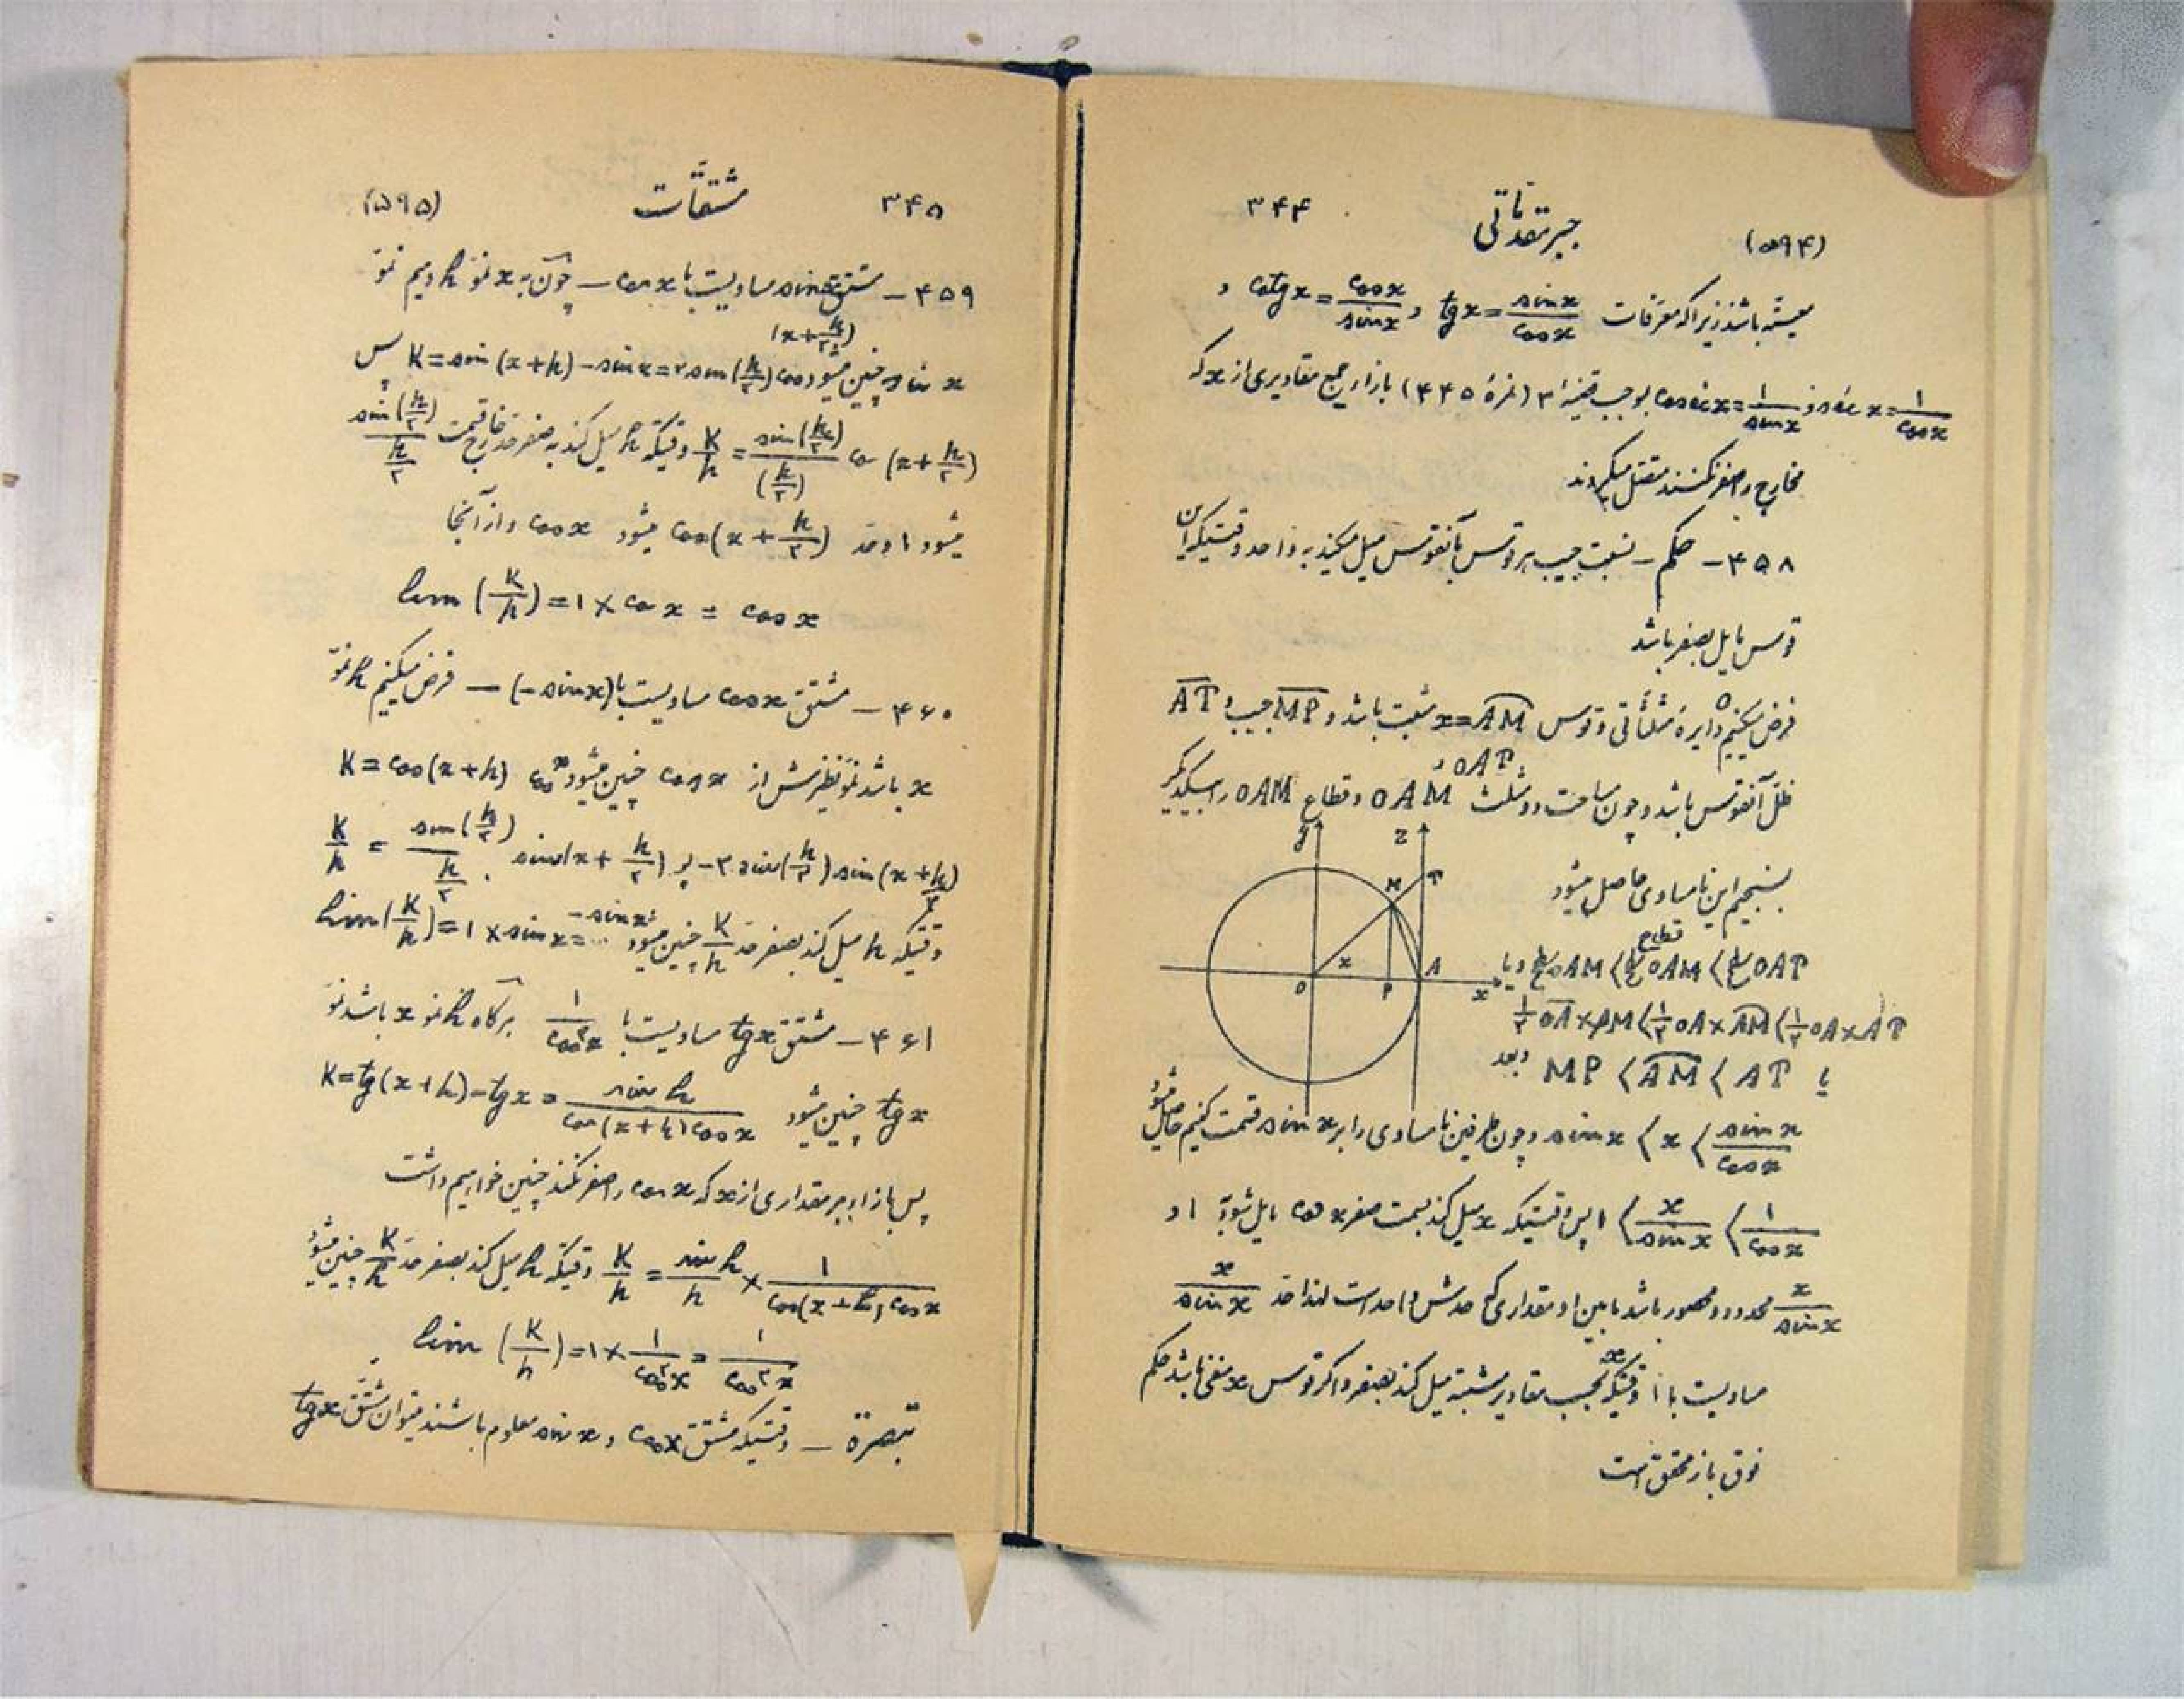 (۵۹۴) جبر مقدماتی ۳۴۴
باشند زیرا که معرفات tgx = sinx/cosx و cotgx = cosx/sinx و
secx = 1/cosx و cosecx = 1/sinx بموجب قضیهٔ ۳ (نمرهٔ ۴۴۵) بازاء جمیع مقادیری از x که
مخارج را صفر نکنند متصل میگردند
۴۵۸ – حکم – نسبت جیب هر قوس بآنقوس میل میکند به واحد وقتیکه آن
قوس مایل بصفر باشد
فرض میکنیم O دایرهٔ مثلثاتی و قوس x = AM مثبت باشد و MP جیب و AT
ظل آنقوس باشد و چون مساحت دو مثلث OAM و OAT و قطاع OAM را بیکدیگر
بسنجیم این نامساوی حاصل میشود
y z M T x O P A x
سطح OAM ⟨ سطح قطاع OAM ⟨ سطح OAT و یا
½ OA × PM ⟨ ½ OA × AM ⟨ ½ OA × AT
یا MP ⟨ AM ⟨ AT و بعد
sinx ⟨ x ⟨ sinx/cosx و چون طرفین نامساوی را بر sinx قسمت کنیم حاصل میشود
۱ ⟨ x/sinx ⟨ ۱/cosx پس وقتیکه x میل کند بسمت صفر cosx مایل شود به ۱ و
x/sinx محدود و محصور باشد مابین ۱ و مقداری که حدش واحد است لهذا حد x/sinx
مساویست با ۱ وقتیکه x بحسب مقادیر مثبته میل کند بصفر و اگر قوس x منفی باشد حکم
فوق باز محقق است
۳۴۵ مشتقات (۵۹۵)
۴۵۹ – مشتق sinx مساویست با cosx – چون به x نمو h دهیم نمو
sinx چنین میشود K = sin(x+h) – sinx = ۲ sin(h/۲) cos(x+h/۲) پس
K/h = sin(h/۲)/(h/۲) cos(x+h/۲) وقتیکه h میل کند به صفر حد خارج قسمت sin(h/۲)/(h/۲)
میشود ۱ و حد cos(x+h/۲) میشود cosx و از آنجا
lim(K/h) = ۱ × cosx = cosx
۴۶۰ – مشتق cosx مساویست با (–sinx) – فرض میکنیم h نمو
x باشد نمو نظیرش از cosx چنین میشود K = cos(x+h) cosx
–۲ sin(h/۲) sin(x+h/۲) پر K/h = sin(h/۲)/(h/۲) . sin(x+h/۲)
وقتیکه h میل کند بصفر حد K/h چنین میشود lim(K/h) = ۱ × sinx = –sinx
۴۶۱ – مشتق tgx مساویست با ۱/cos²x هرگاه h نمو x باشد نمو
tgx چنین میشود K = tg(x+h) – tgx = sin h/cos(x+h)cosx
پس بازاء هر مقداری از x که cosx را صفر نکند چنین خواهیم داشت
K/h = sin h/h × ۱/cos(x+h)cosx وقتیکه h میل کند بصفر حد K/h چنین میشود
lim(K/h) = ۱ × ۱/cos²x = ۱/cos²x
تبصرة – وقتیکه مشتق cosx و sinx معلوم باشند میتوان مشتق tgx